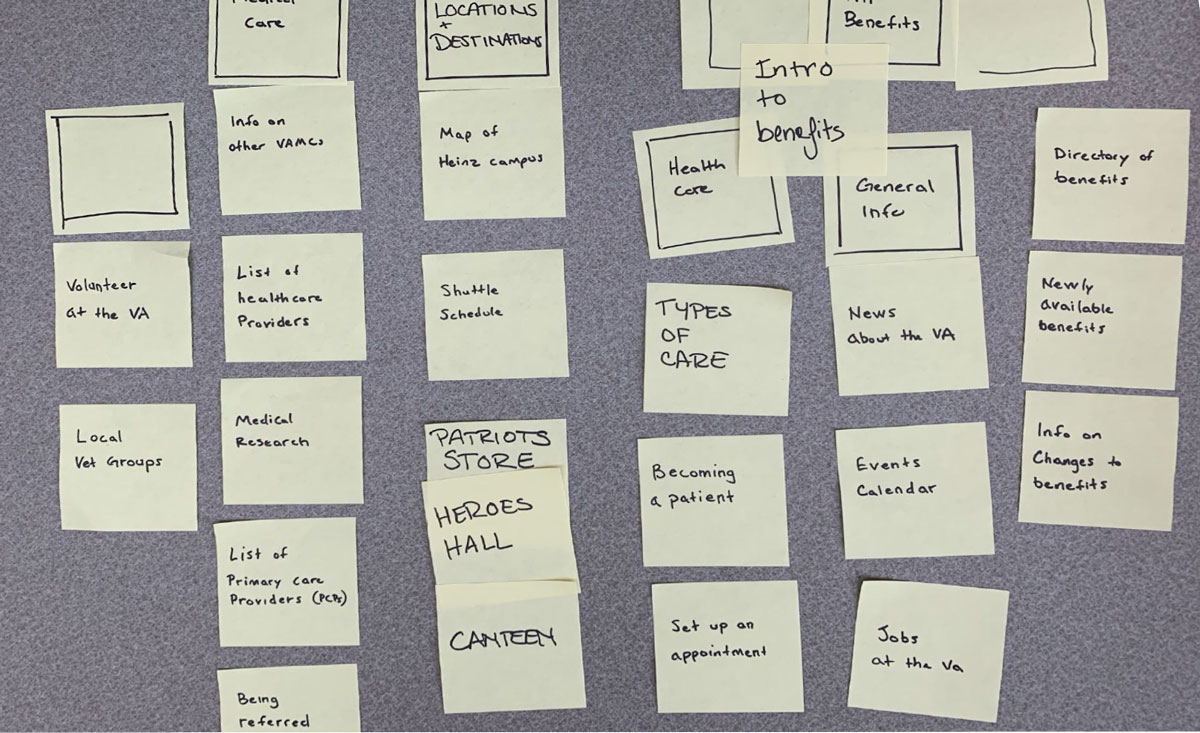 Medical
Care
Info on
other VAMCs
List of
healthcare
Providers
Medical
Research
List of
Primary care
Providers (PCPs)
Being
referred
Volunteer
at the VA
Local
Vet Groups
LOCATIONS
+
DESTINATIONS
Map of
Heinz campus
Shuttle
Schedule
PATRIOTS
STORE
HEROES
HALL
CANTEEN
Benefits
Intro
to
benefits
Health
care
TYPES
OF
CARE
Becoming
a patient
Set up an
appointment
General
Info
News
about the VA
Events
Calendar
Jobs
at the Va
Directory of
benefits
Newly
available
benefits
Info on
Changes to
benefits